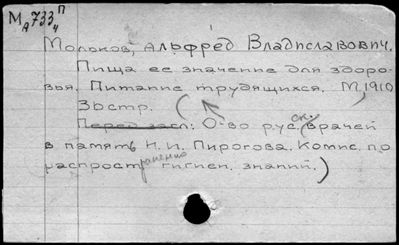 МА733 П 4
Молоков, Альфред Владиславович.
Пища ее значение для здоро-
вья. Питание трудящихся. М, 1910
36стр.
(Перед загл: О-во рус ск. врачей
в память Н. И. Пирогова. Комис. по
распространению гигиен. знаний.)